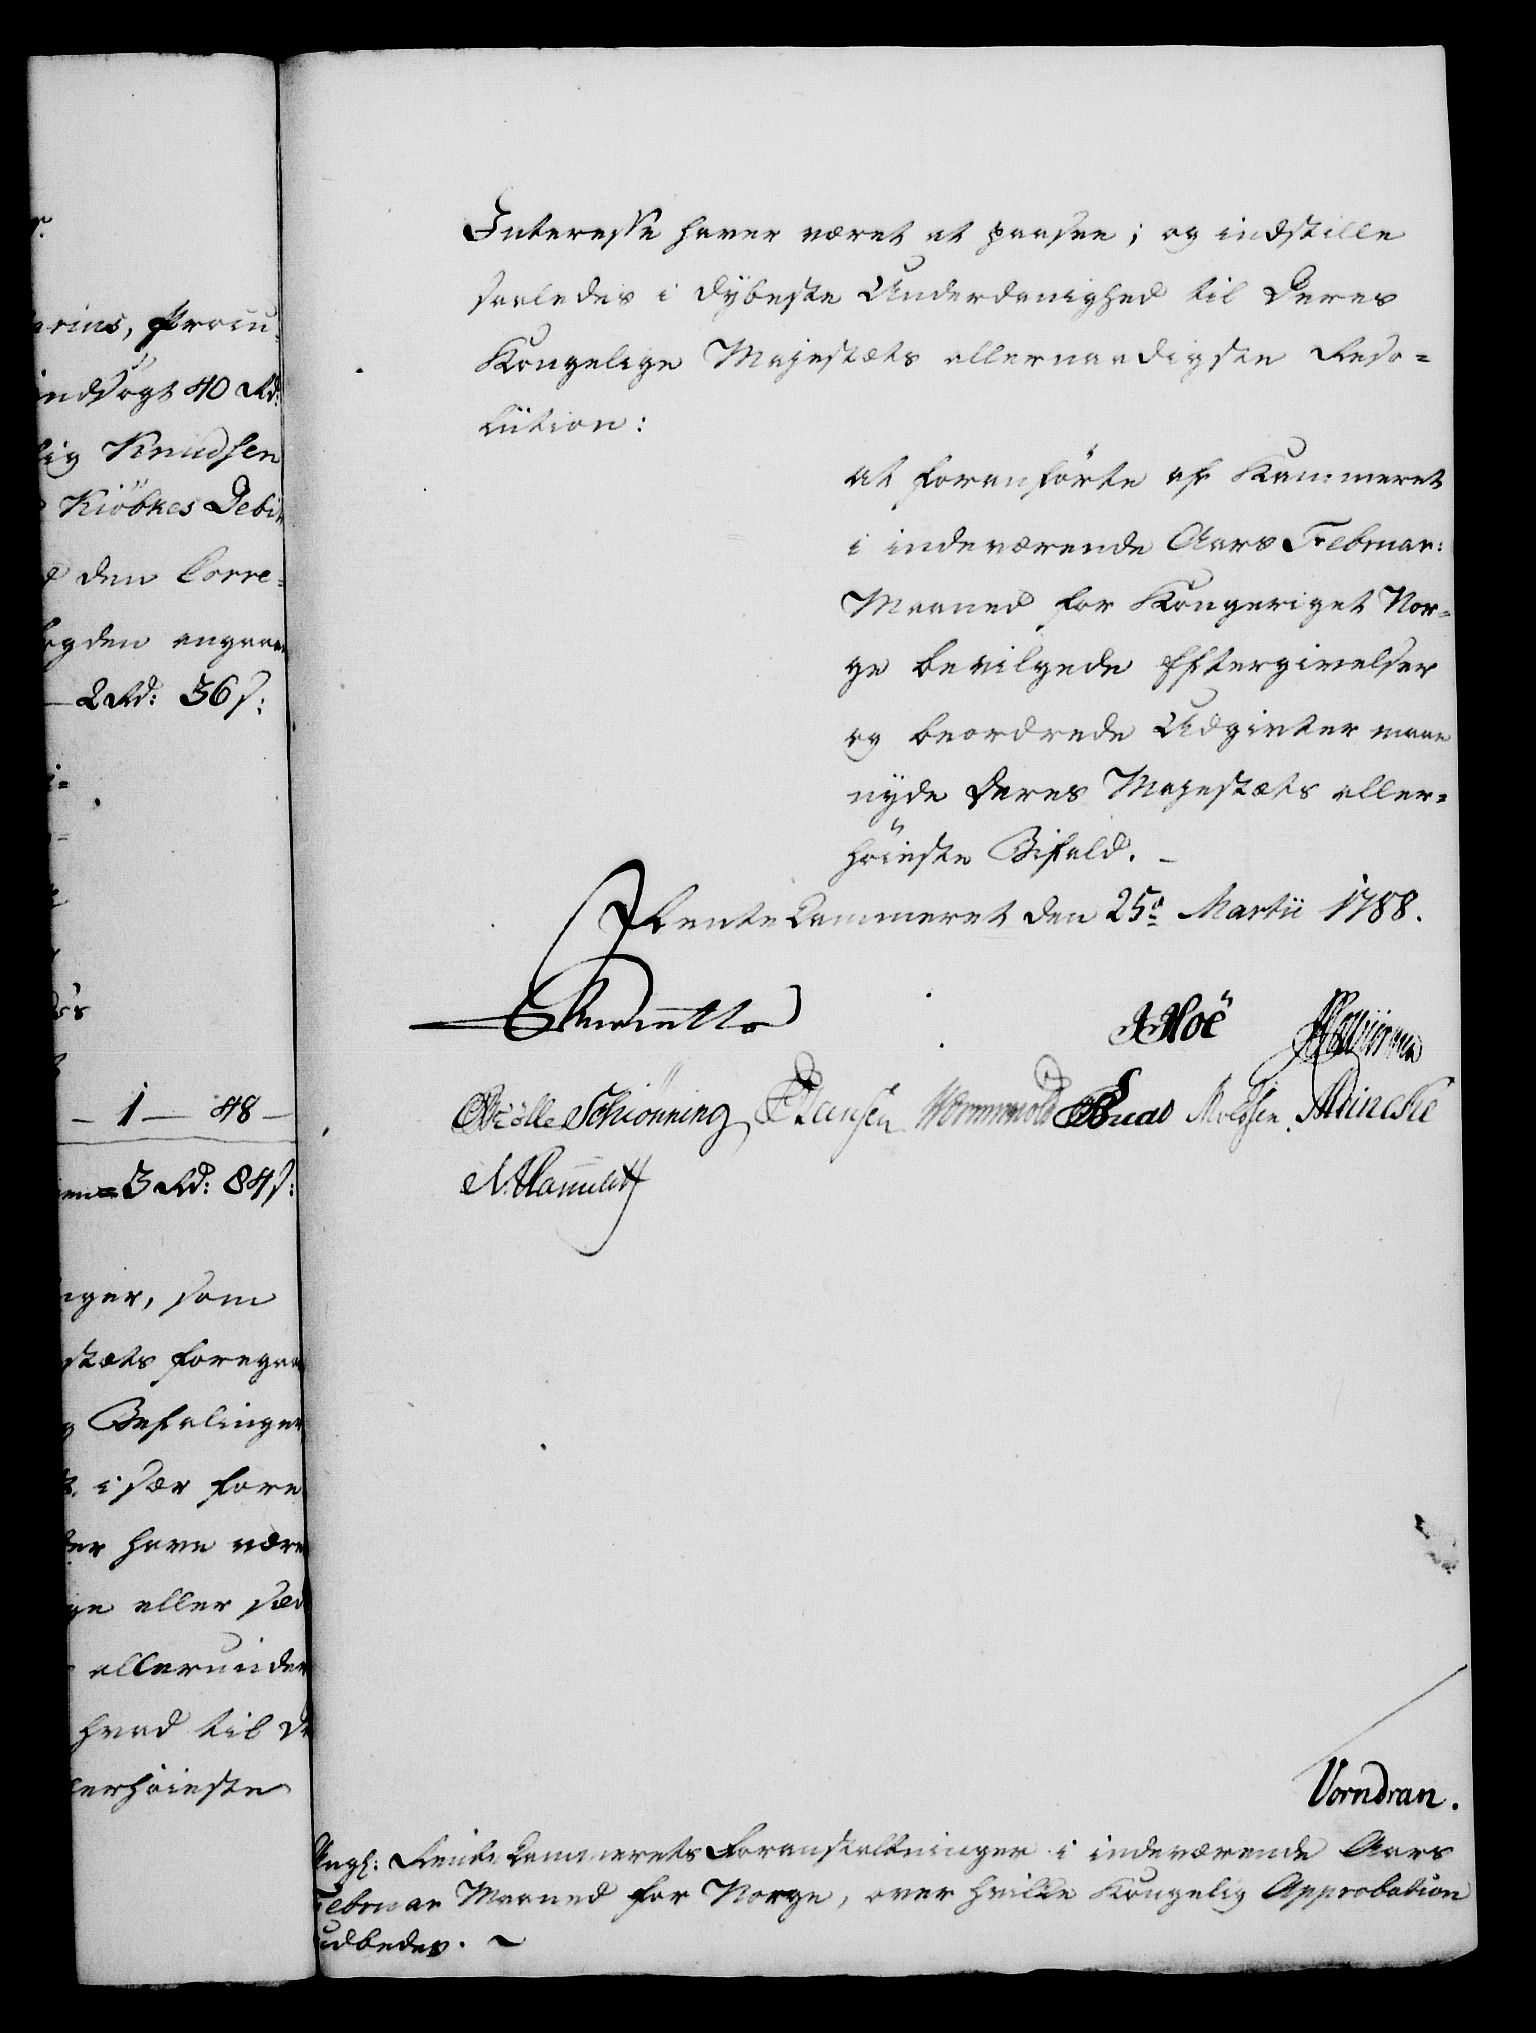 r.
arius, Procu-
indsøgt 40 Rd:
lig Knudsen
Kiöbkes Debi
den Corre-
ogden angaae
2 Rd: 36 s:
1 — 48 —
3 Rd: 84 s:
nger, som
stæts foregaa
Befalinger
i sær fore
der have være
ge eller sæd
allerunder
hvad til De
lerhöieste
Interesse haver været at paasee; og indstille
saaledes i dybeste Underdanighed til Deres
Kongelige Majestæts allernaadigste Reso-
lution:
at foranførte af Kammeret
i indeværende Aars Februar:
Maaned for Kongeriget Nor-
ge bevilgede Eftergivelser
og beordrede Udgivter maae
nyde Deres Majestæts aller-
höieste Bifald. —
Rentekammeret den 25d Martii 1788.
Hoë
Schiönning Hansen Wormskiold Meincke
Vorndran.
Angl: Rente Kammerets Foranstaltninger i indeværende Aars
Februar Maaned for Norge, over hvilke Kongelig Approbation
udbedes. ~